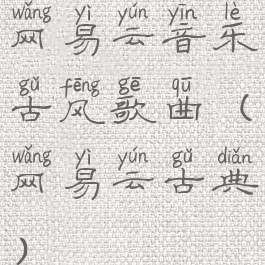 wǎng yì yún yīn lè
网易云音乐
gǔ fēng gē qū
古风歌曲（
wǎng yì yún gǔ diǎn
网易云古典
）